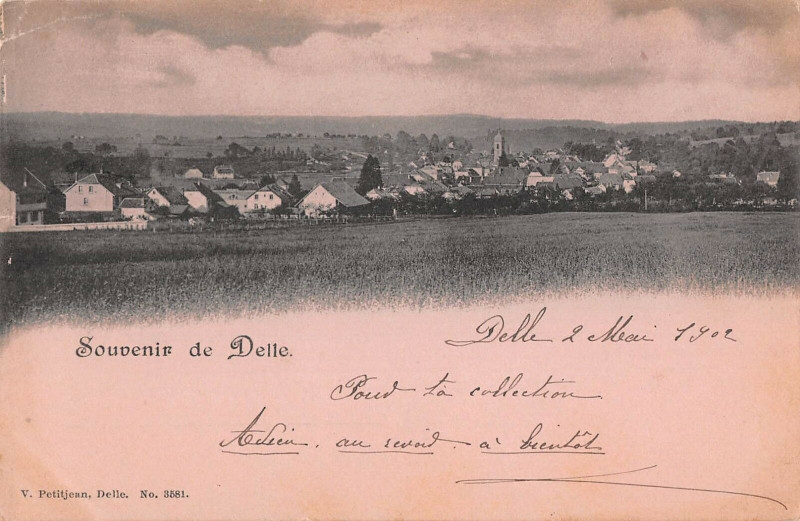 Souvenir de Delle.
Delle 2 Mai 1902
Pour ta collection
Adieu. au revoir. à bientôt
V. Petitjean, Delle. No. 3581.